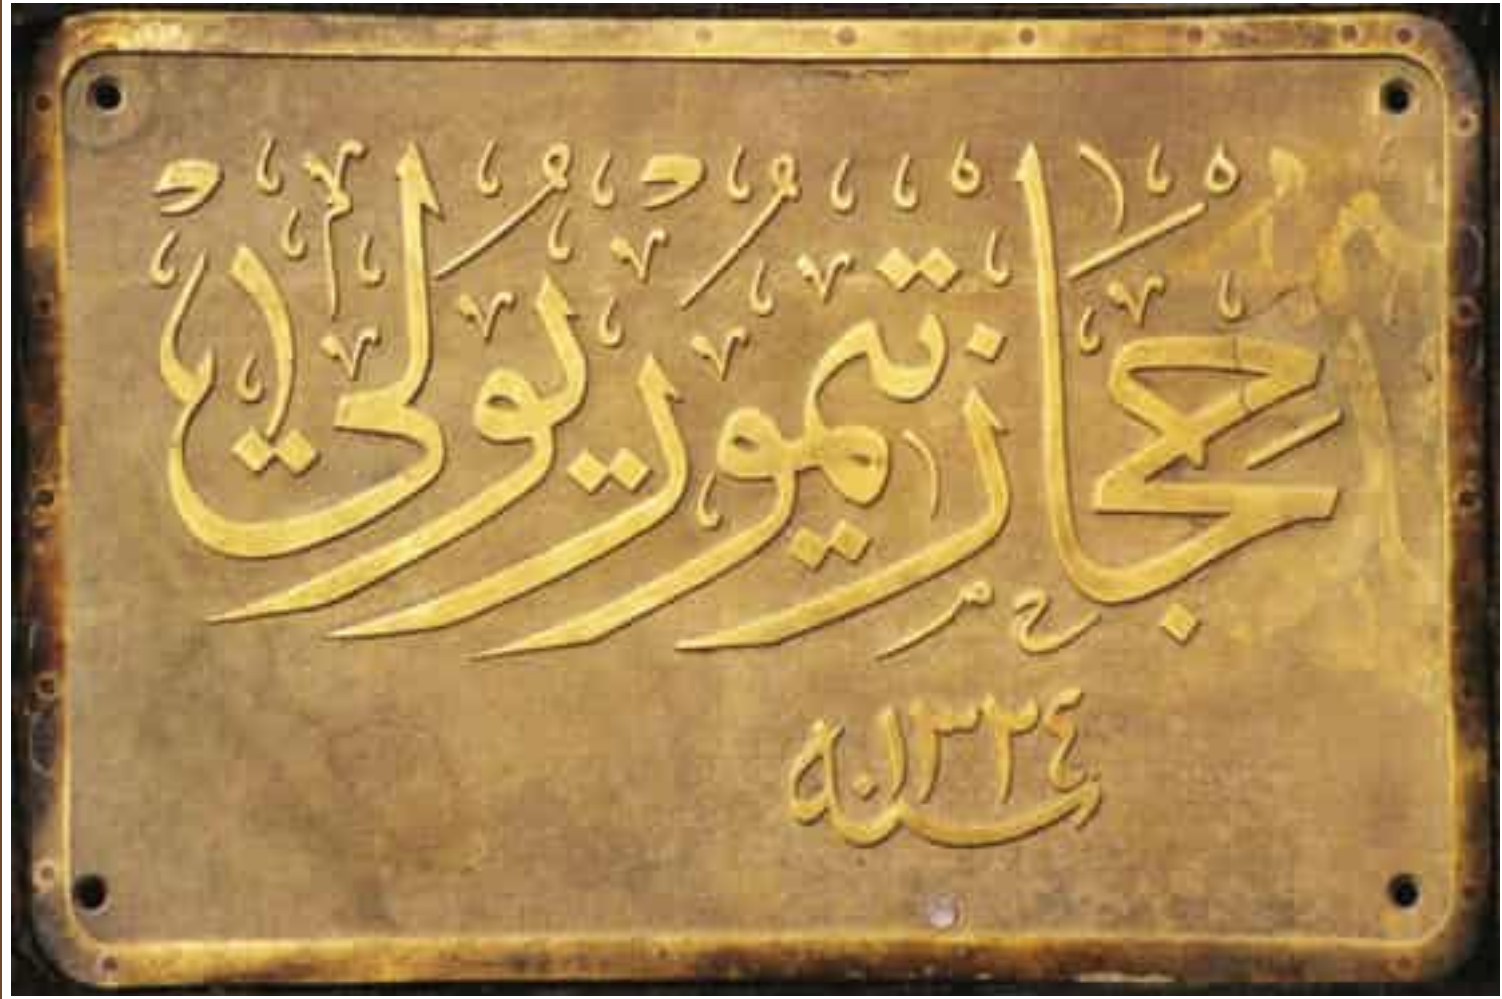 حجاز تیمور یولی
سنه ١٣٢٤